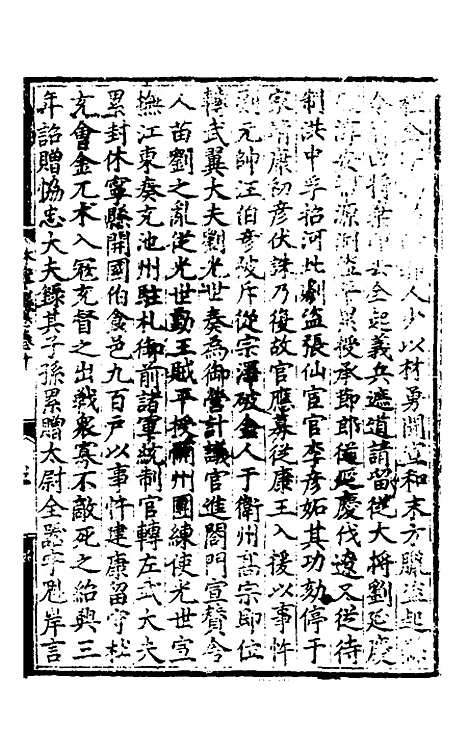 人少以材勇聞宣和末方臘起
全起義兵遮道請留從大將劉延慶
源洞 累授承節郎從延慶伐遼又從待
制洪中孚招河北劇盜張仙宦官李彥妬其功劾停于
家靖康初彥伏誅乃復故官應募從康王入援以事忤
副元帥汪伯彥被斥從宗澤破金人于衛州高宗即位
轉武翼大夫劉光世奏為御營計議官進閤門宣贊舍
人苗劉之亂從光世勤王賊平授 州團練使光世宣
撫江東奏充池州駐札御前諸軍統制官轉左武大夫
累封休寧縣開國伯食邑九百戶以事忤建康留守杜
充會金兀朮入寇充督之出戰衆寡不敵死之紹興三
年詔贈協忠大夫錄其子孫累贈太尉全 字 岸言